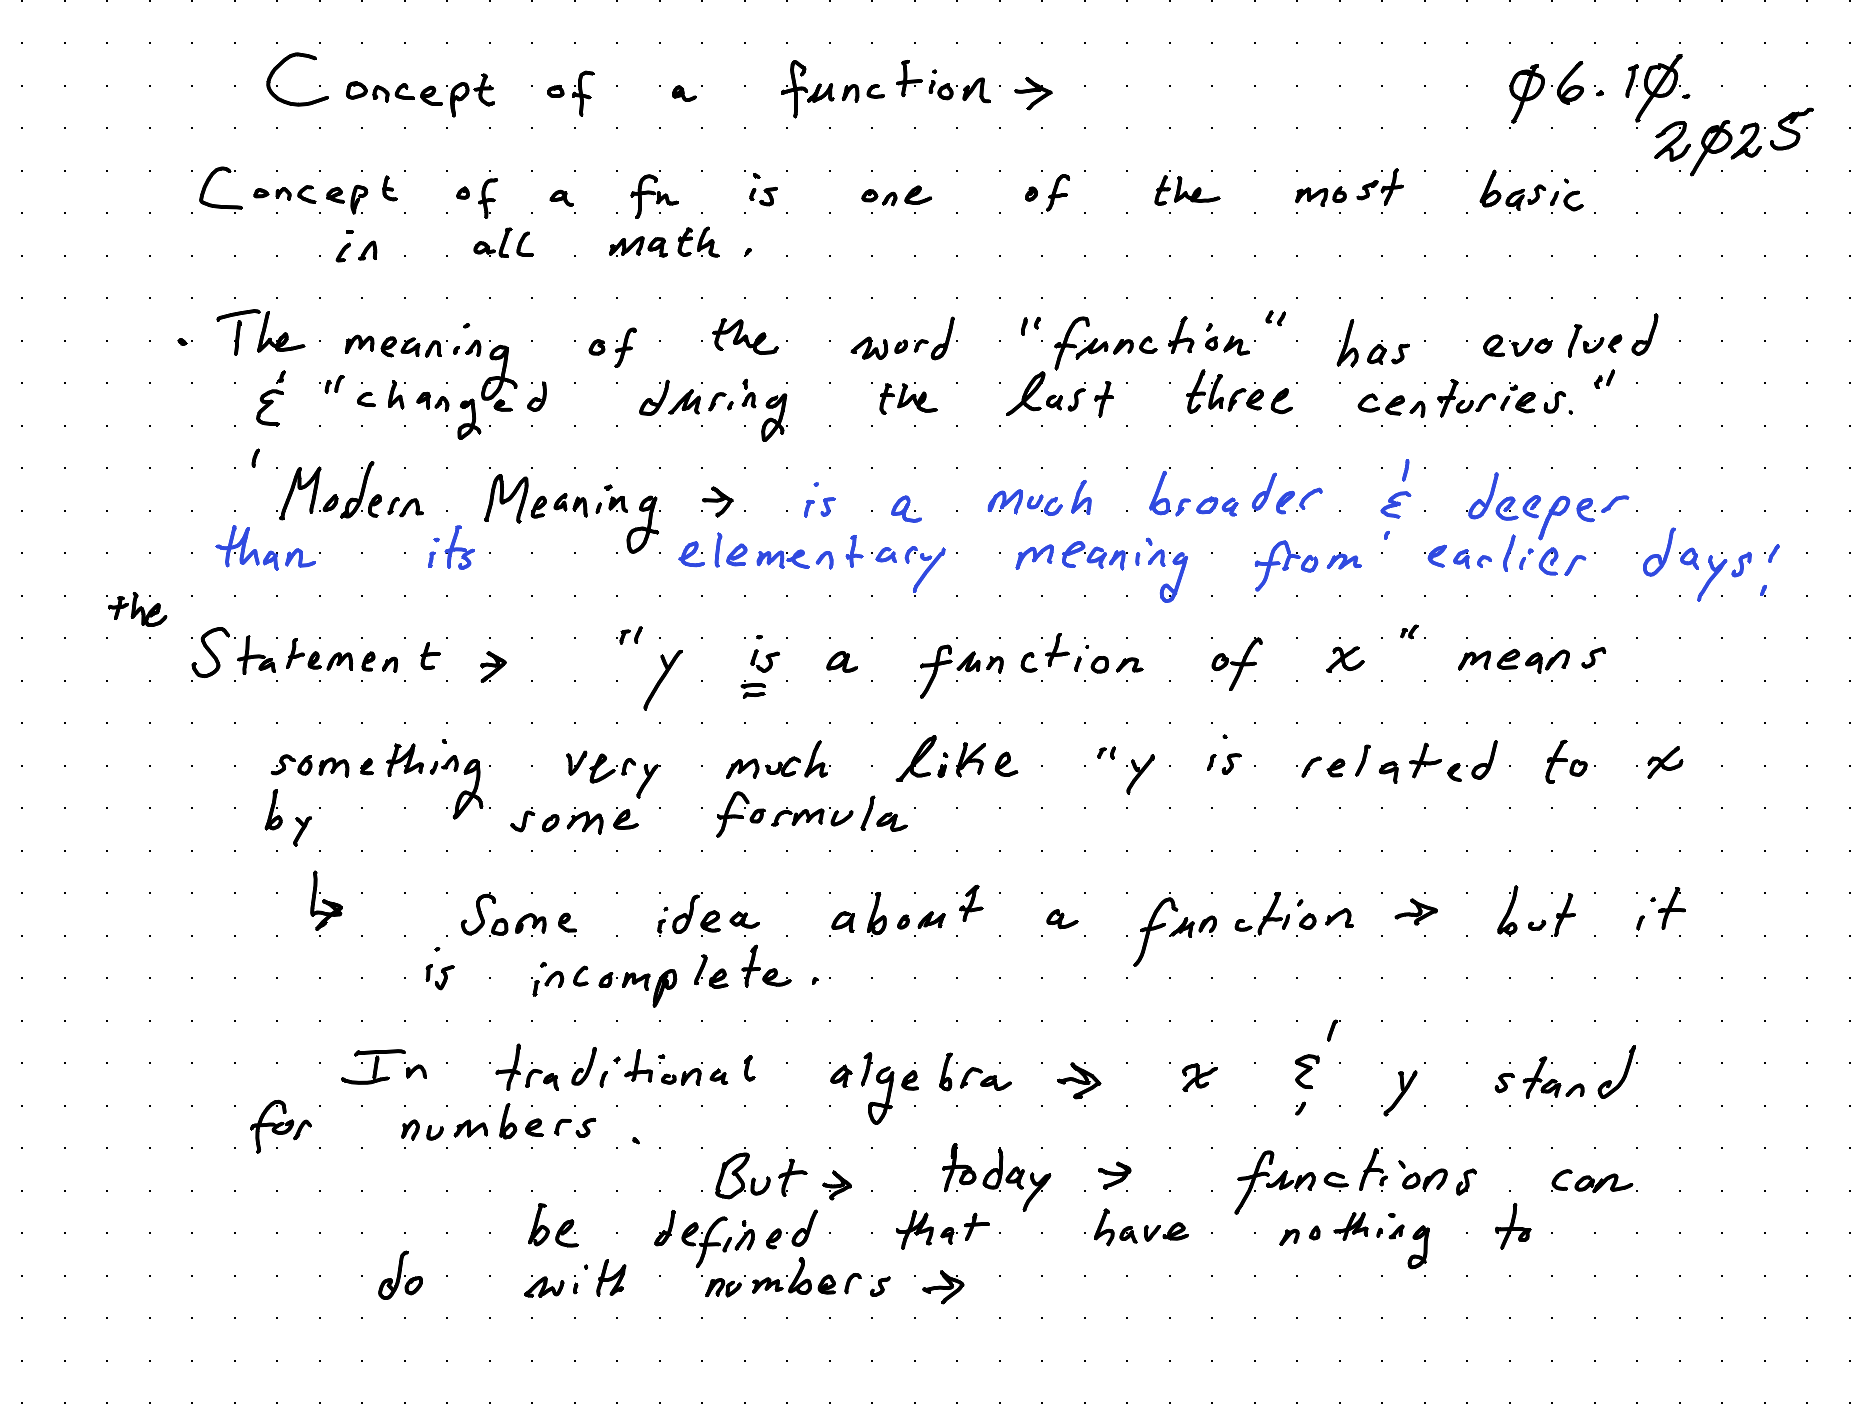 Concept of a function → 06.10.
2025
Concept of a fn is one of the most basic
in all math.
· The meaning of the word "function" has evolved
& "changed during the last three centuries."
'Modern Meaning → is a much broader & deeper
than its elementary meaning from earlier days!
the
Statement → "y is a function of x" means
something very much like "y is related to x
by some formula
↳ Some idea about a function → but it
is incomplete.
In traditional algebra → x & y stand
for numbers.
But → today → functions can
be defined that have nothing to
do with numbers →